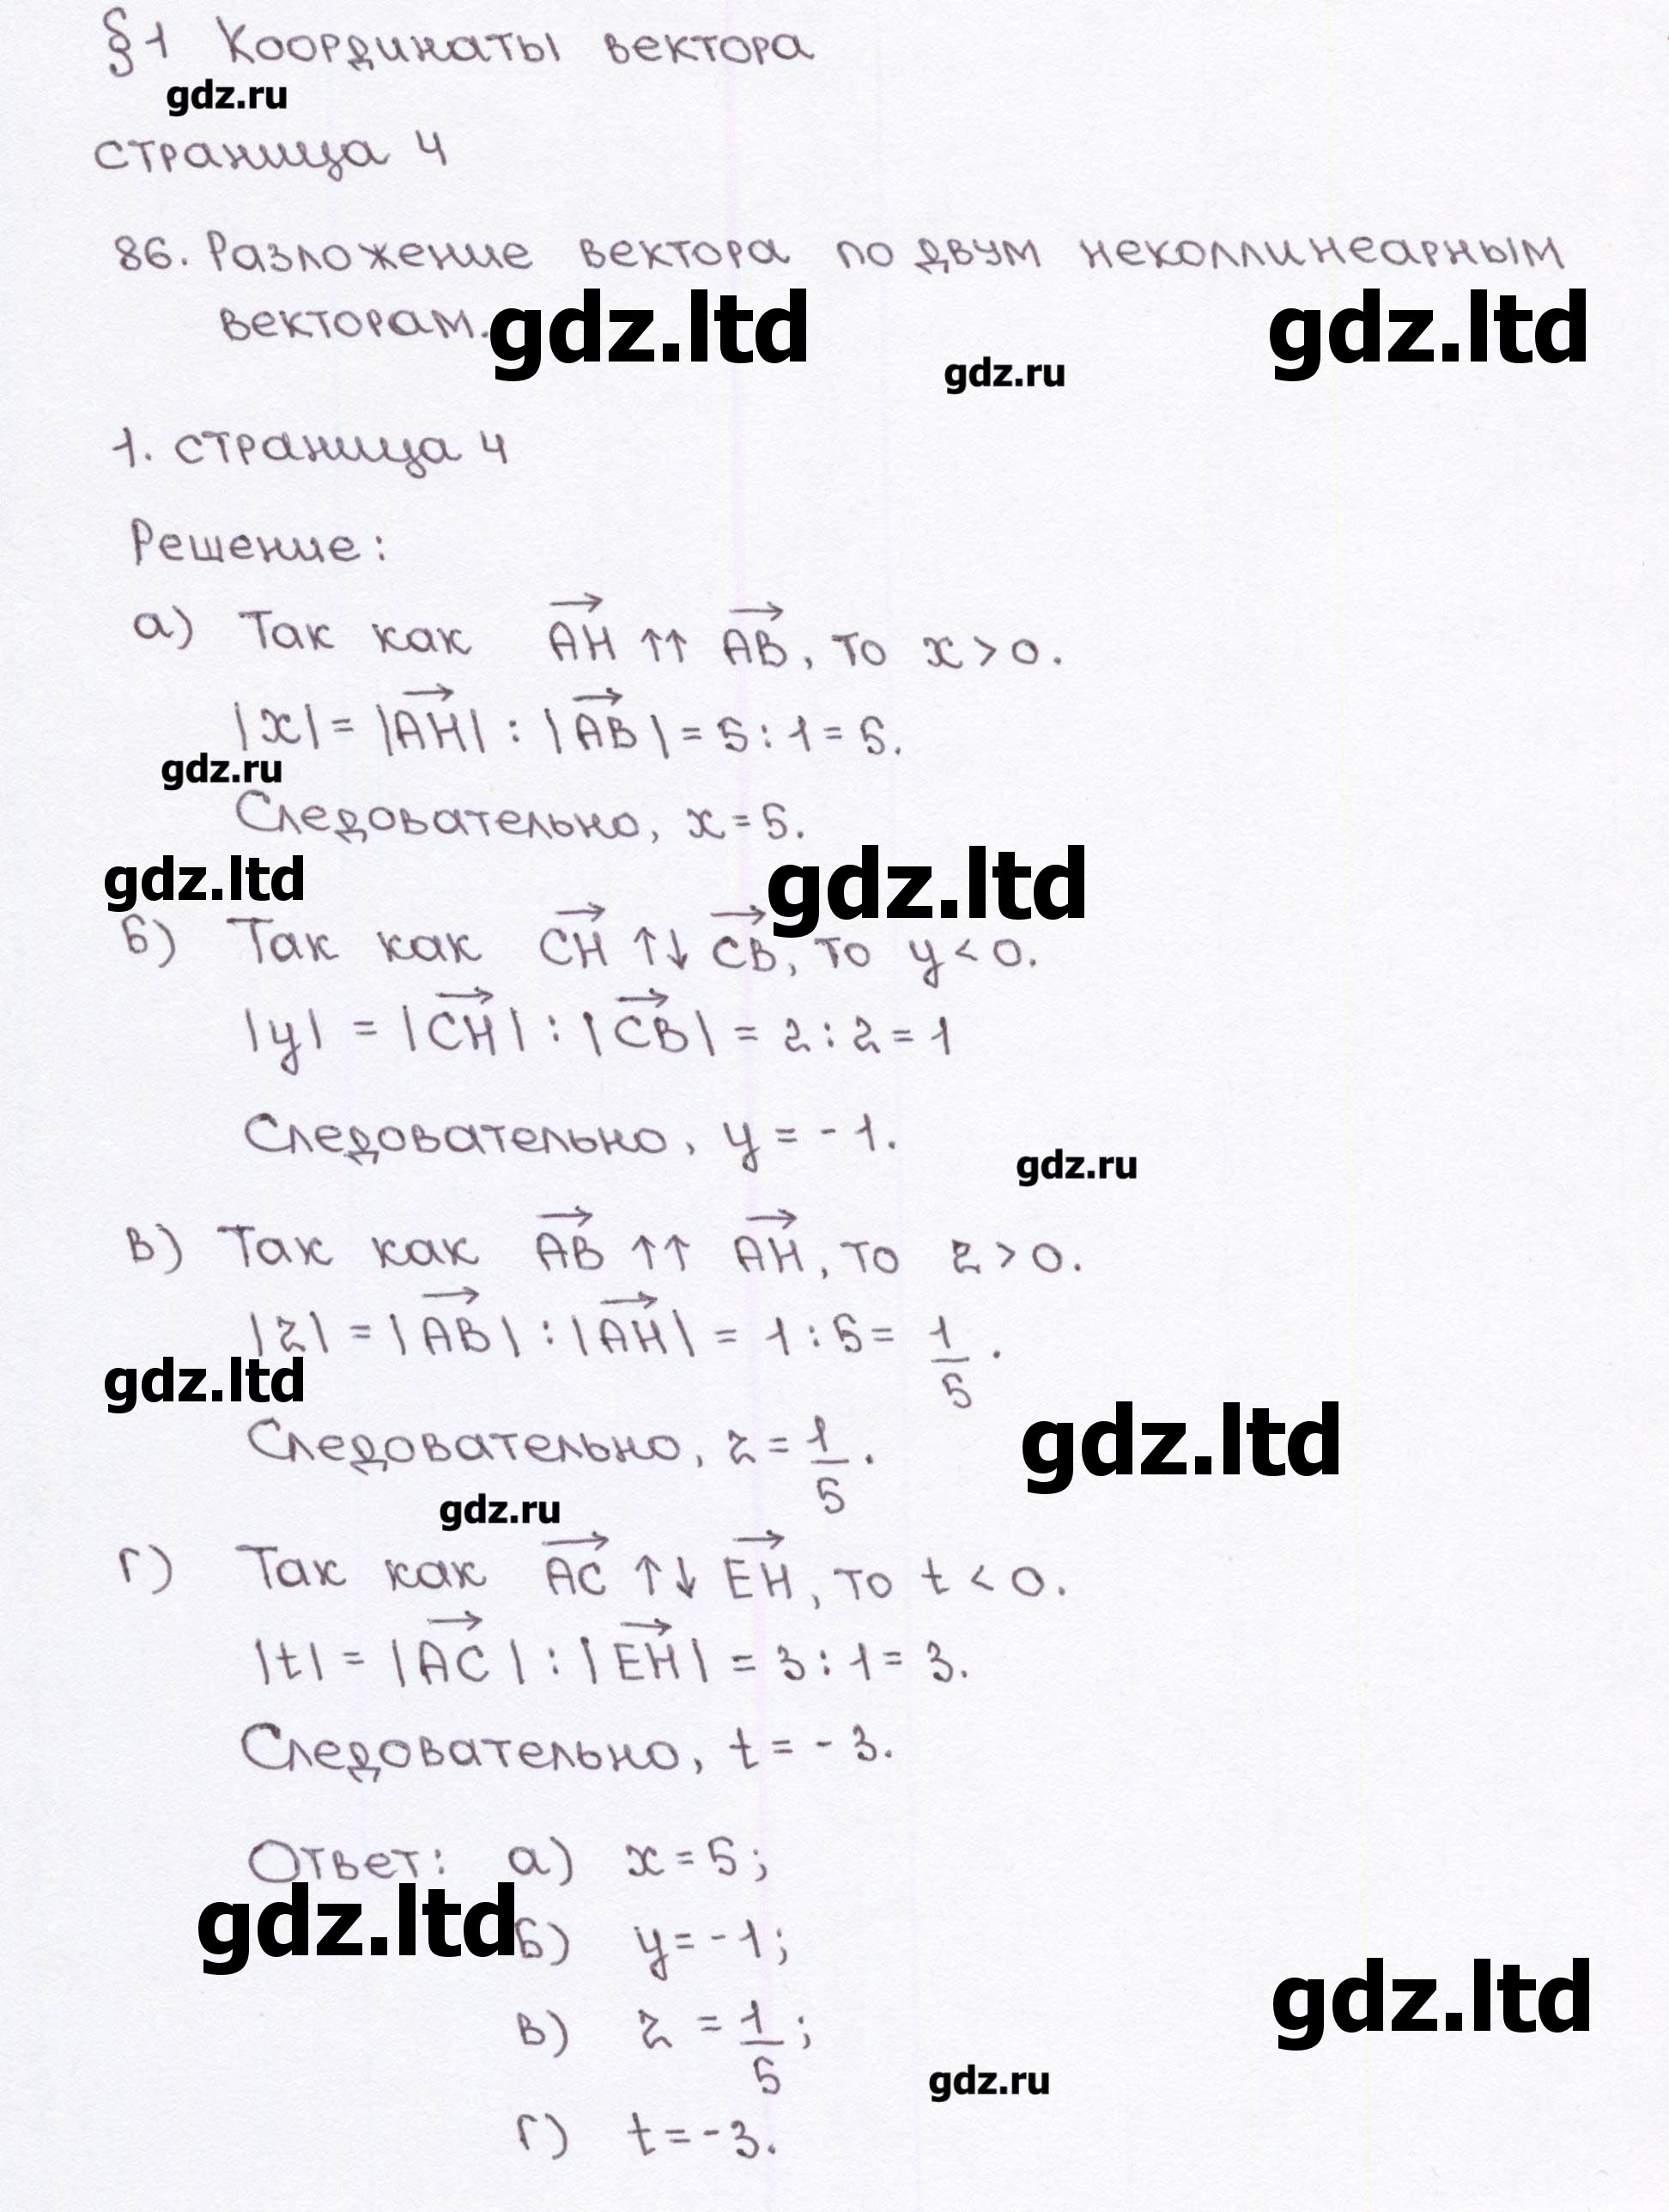 §1 Координаты вектора
gdz.ru
страница 4
86. Разложение вектора по двум неколлинеарным
векторам.
gdz.ltd gdz.ltd
gdz.ru
1. страница 4
Решение:
а) Так как AH ↑↑ AB, то x > 0.
|x| = |AH| : |AB| = 5 : 1 = 5.
gdz.ru
Следовательно, x = 5.
gdz.ltd gdz.ltd
б) Так как CH ↑↓ CB, то y < 0.
|y| = |CH| : |CB| = 2 : 2 = 1
Следовательно, y = -1.
gdz.ru
в) Так как AB ↑↑ AH, то z > 0.
|z| = |AB| : |AH| = 1 : 5 = 1/5.
gdz.ltd
Следовательно, z = 1/5.
gdz.ltd
gdz.ru
г) Так как AC ↑↓ EH, то t < 0.
|t| = |AC| : |EH| = 3 : 1 = 3.
Следовательно, t = -3.
Ответ: а) x = 5;
gdz.ltd
б) y = -1;
gdz.ltd
в) z = 1/5;
gdz.ru
г) t = -3.